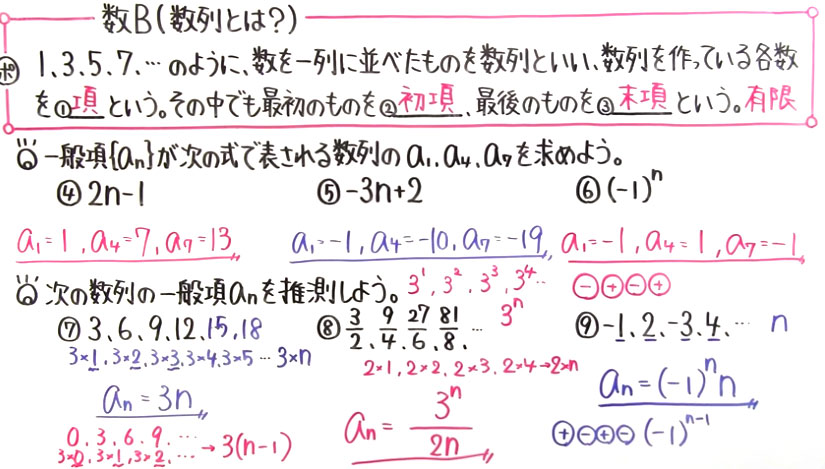 数B(数列とは?)
ポ 1,3,5,7,…のように、数を一列に並べたものを数列といい、数列を作っている各数
を①項という。その中でも最初のものを②初項、最後のものを③末項という。有限
一般項{an}が次の式で表される数列のa₁,a₄,a₇を求めよう。
④2n-1 ⑤-3n+2 ⑥(-1)ⁿ
a₁=1,a₄=7,a₇=13 a₁=-1,a₄=-10,a₇=-19 a₁=-1,a₄=1,a₇=-1
次の数列の一般項anを推測しよう。 3¹,3²,3³,3⁴… ⊖⊕⊖⊕
⑦3,6,9,12,15,18 ⑧3/2,9/4,27/6,81/8,… 3ⁿ ⑨-1,2,-3,4,… n
3×1,3×2,3×3,3×4,3×5…3×n 2×1,2×2,2×3,2×4→2×n
an=3n an=3ⁿ/2n an=(-1)ⁿn
0,3,6,9,…→3(n-1) ⊕⊖⊕⊖(-1)ⁿ⁻¹
3×0,3×1,3×2,…